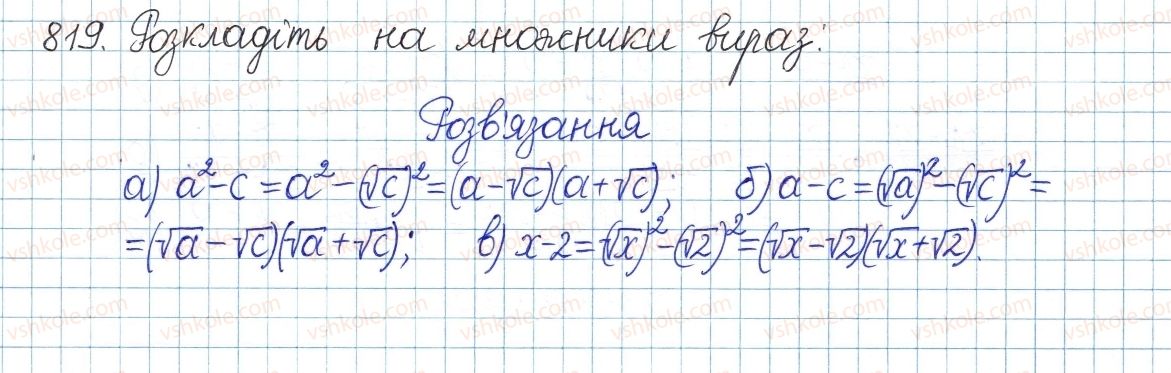 819. Розкладіть на множники вираз:
Розв'язання
а) a²-c = a²-(√c)² = (a-√c)(a+√c); б) a-c = (√a)²-(√c)² =
= (√a-√c)(√a+√c); в) x-2 = (√x)²-(√2)² = (√x-√2)(√x+√2).